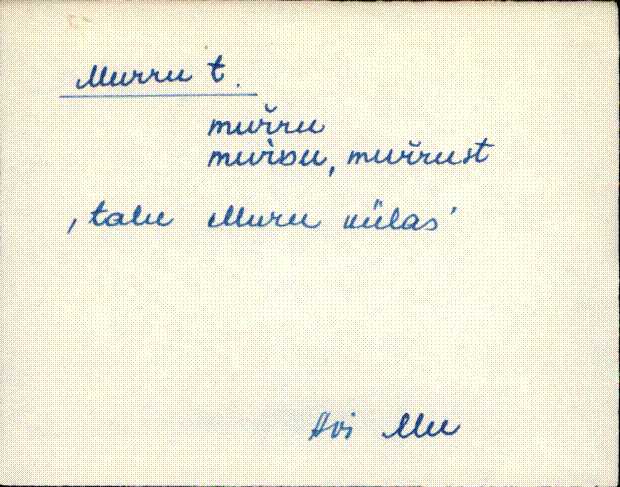 Murru t.
muřru
murru, muřrust
, talu Muru külas'
Avi Mu